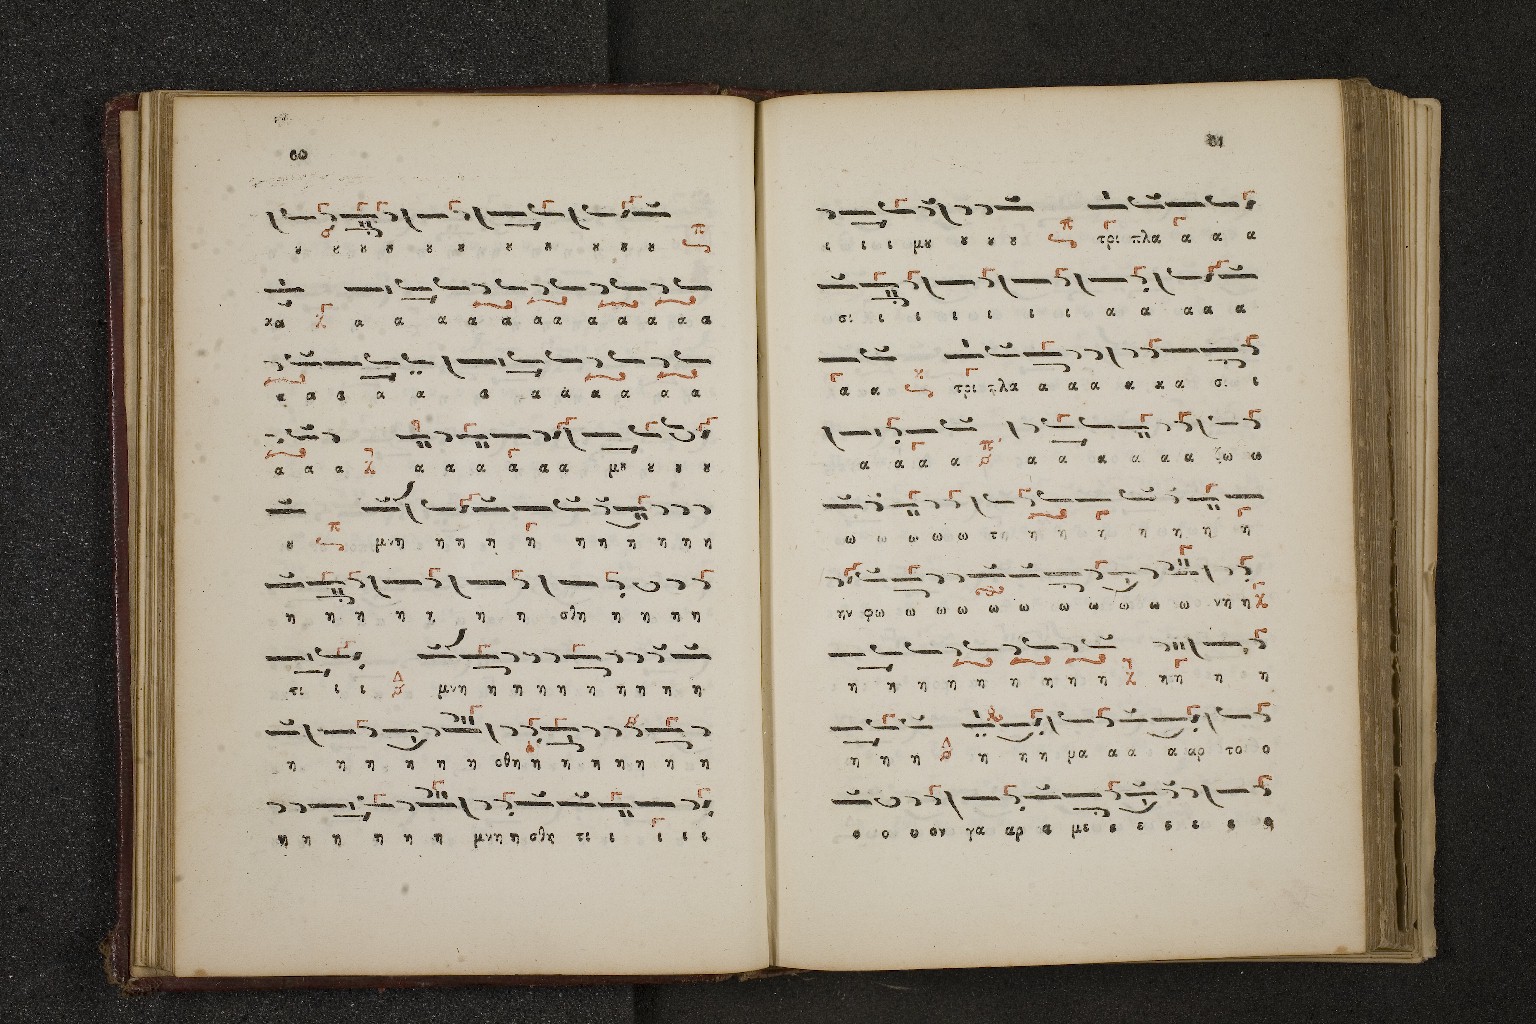 60
ȣ ȣ ȣ ȣ ȣ ȣ ȣ ȣ ȣ ȣ ȣ ȣ
κα α α α α α α α α α α α
α α α α α α α α α α α
α α α α α α α α α μȣ ȣ ȣ ȣ
ȣ μνη η η η η η η η η η
η η η η η η η σθη η η η η
τι ι ι μνη η η η η η η η η
η η η η η η σθη η η η η η η η
η η η η η η μνη η σθη τι ι ι ι ι
61
ι ι ι μȣ ȣ ȣ ȣ τρι πλα α α α
σι ι ι ι ι ι ι α α α α α
α α τρι πλα α α α α α α σι ι
α α α α α α α α α α α ζω ω
ω ω ω ω ω τη η η η η η η η
ην φω ω ω ω ω ω ω ω ω ω ω νη η
η η η η η η η η η η η η η
η η η η η η μα α α α αρ το ο
ο ο υ ον γα αρ α με ε ε ε ε ε ε